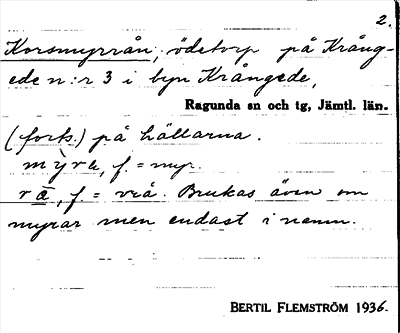 2.
Korsmyrrån, ödetorp på Krång-
ede n:r 3 i byn Krångede,
Ragunda sn och tg, Jämtl. län.
(forts.) på hällarna.
f. = myr.
f = vrå. Brukas även om
myrar men endast i namn.
BERTIL FLEMSTRÖM 1936.